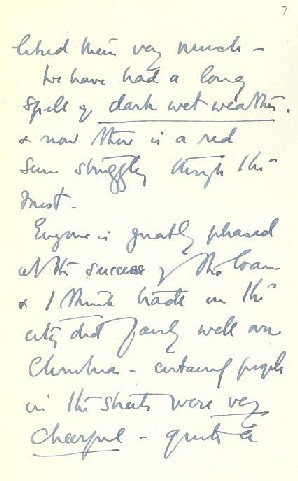 7
liked them very much –
We have had a long
spell of dark wet weather.
& now there is a red
sun struggling through the
mist.
Everyone is greatly pleased
at the success of the loan
& I think trade in the
city did fairly well over
Christmas – certainly people
in the streets were very
cheerful – quite a